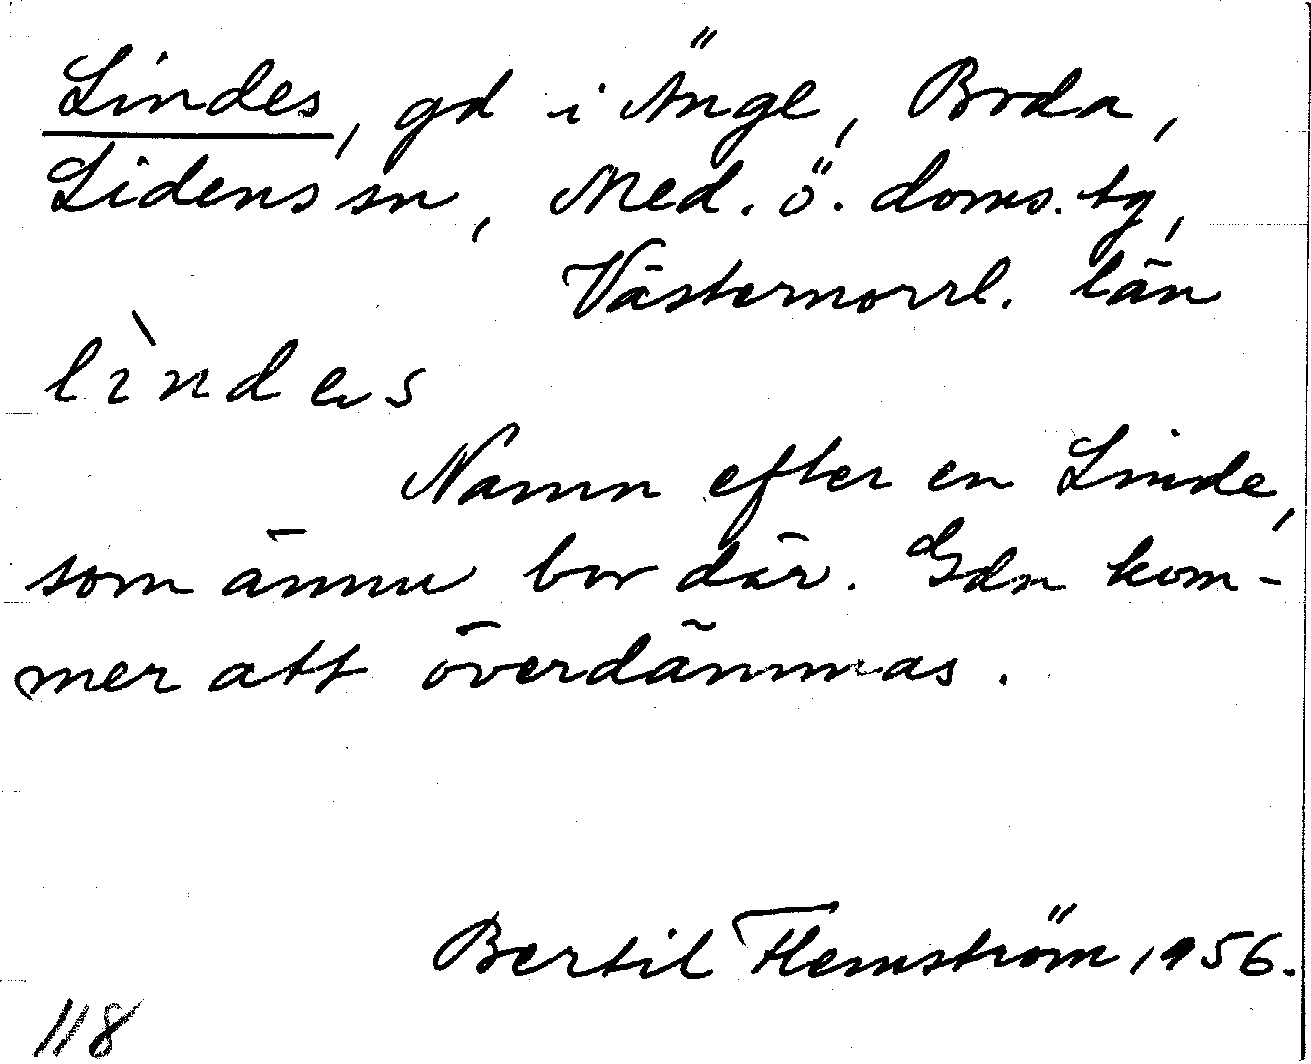 Lindes, gd i Änge, Boda,
Lidens sn, Med. ö. doms. tg,
Västernorrl. län
lìndes
Namn efter en Linde,
som ännu bor där. Gdn kom-
mer att överdämmas.
Bertil Flemström 1956.
118